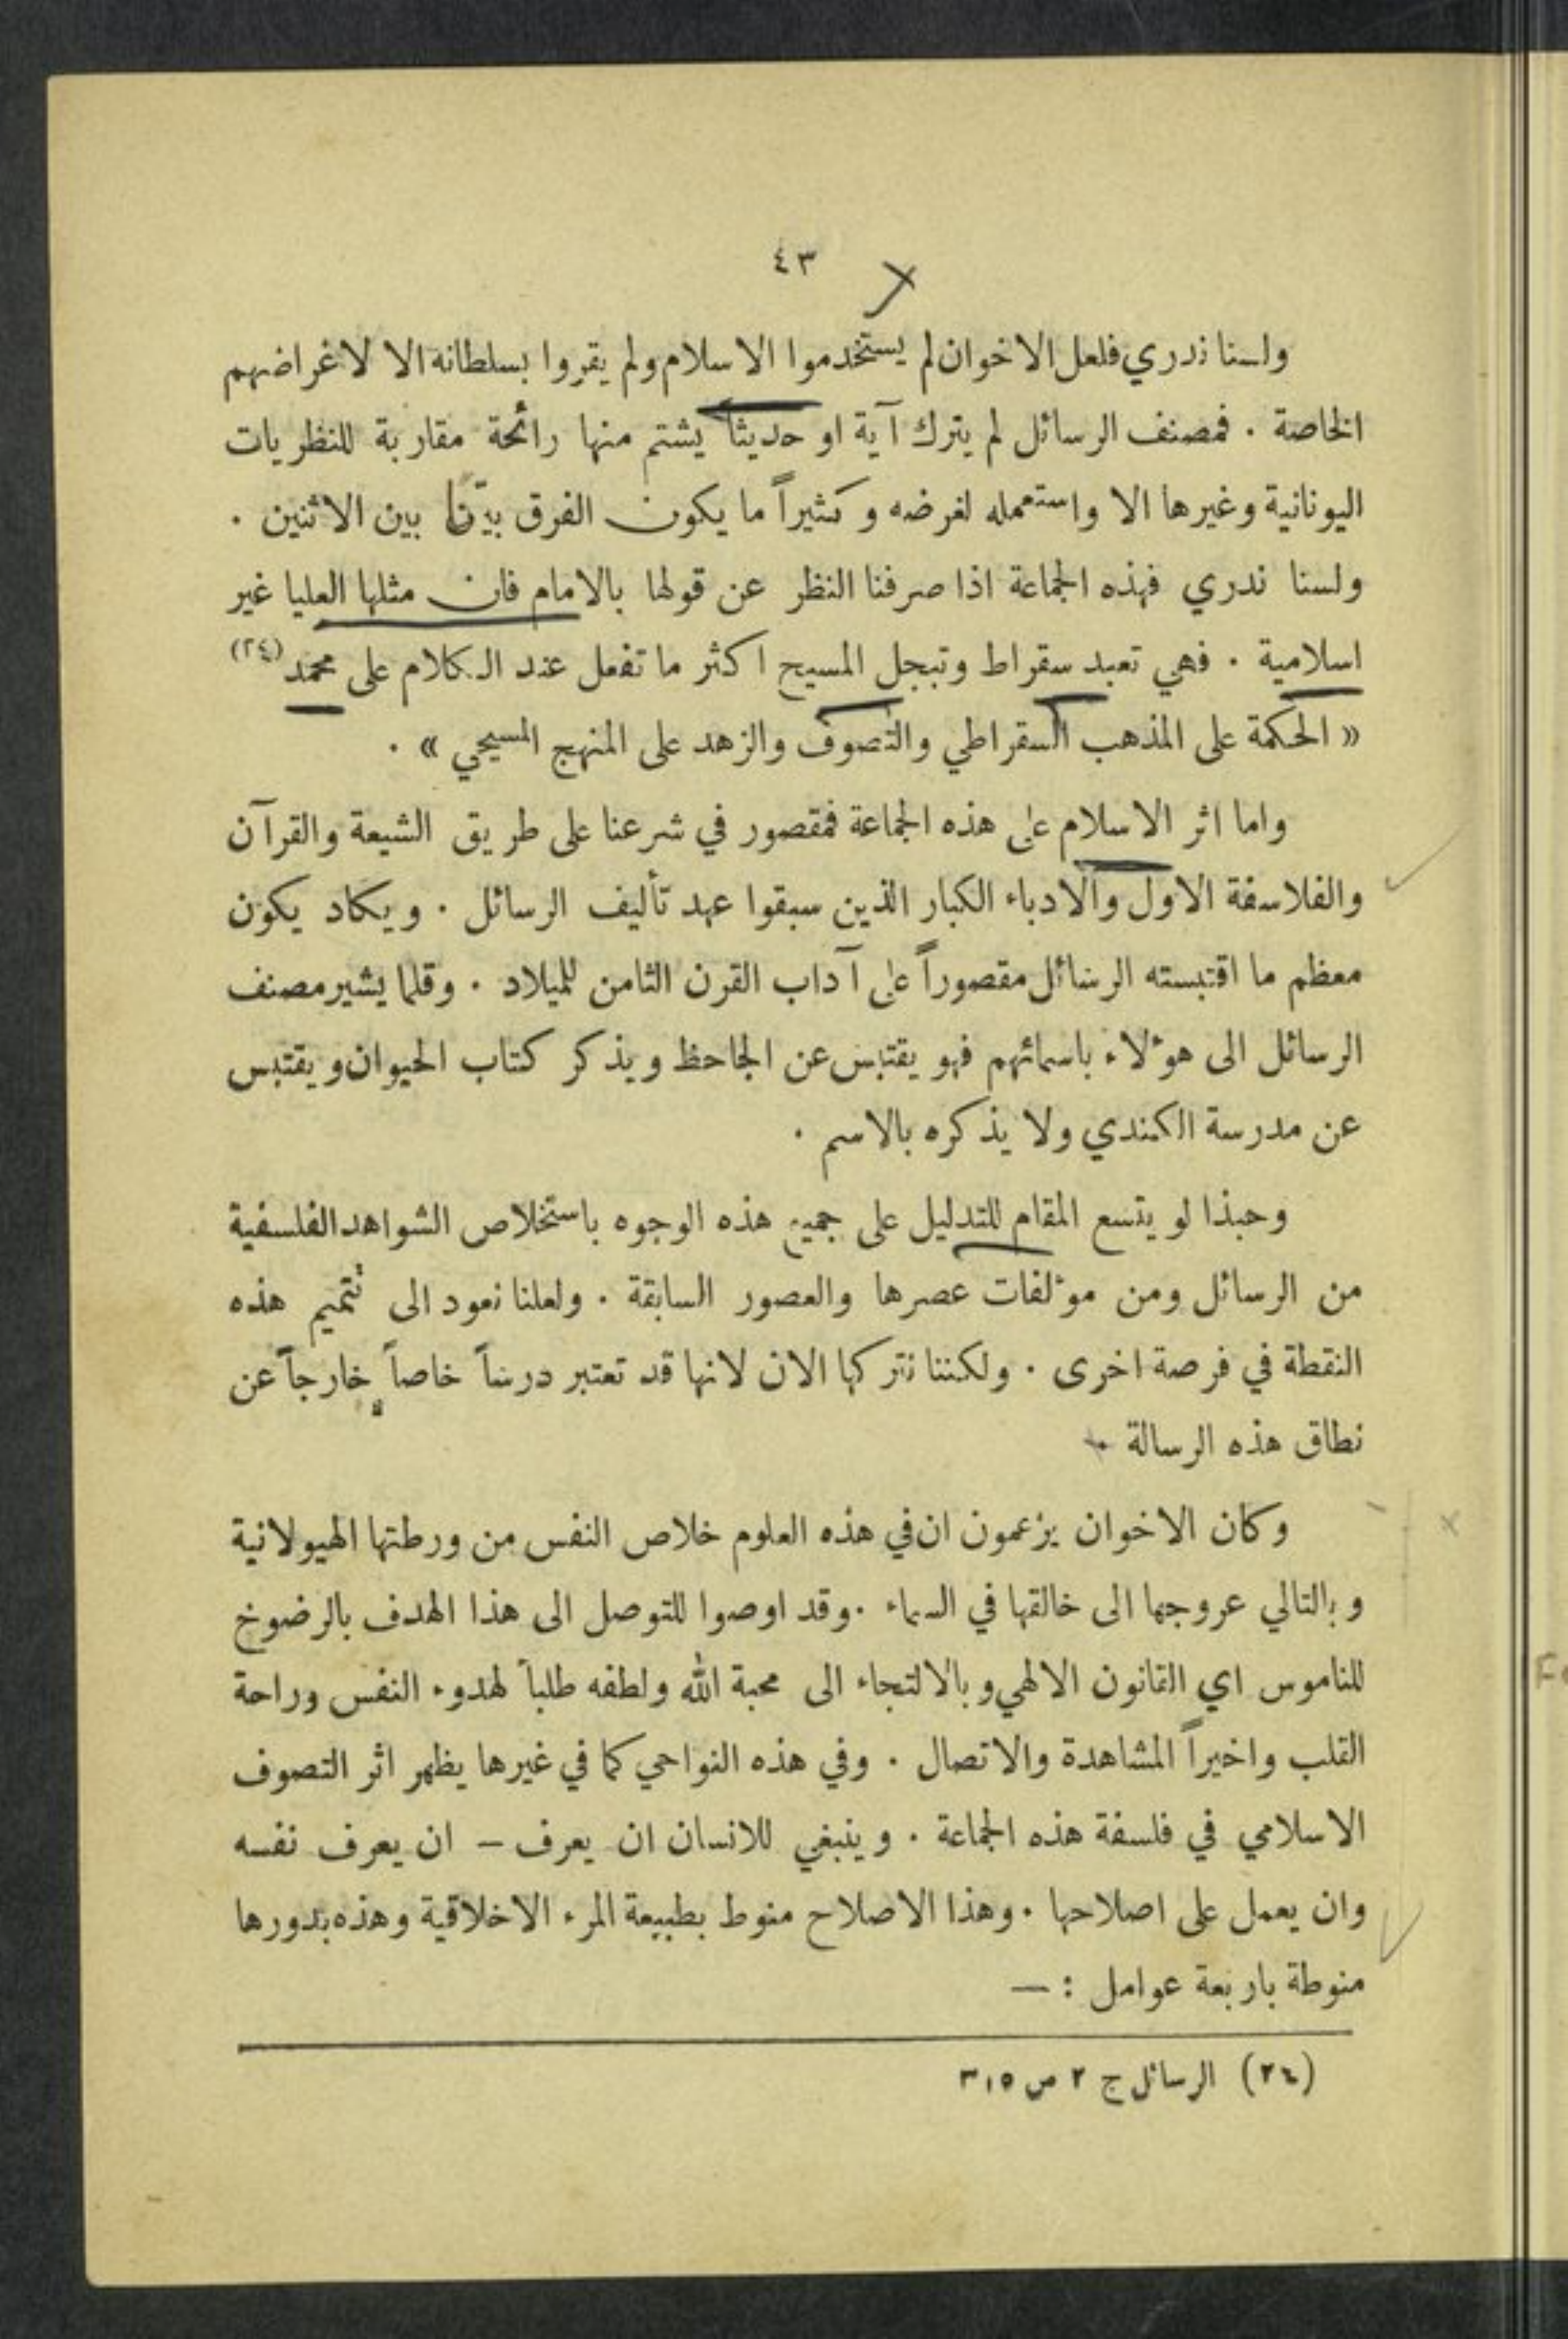 ٤٣
ولسنا ندري فلعل الاخوان لم يستخدموا الاسلام ولم يقروا بسلطانه الا لاغراضهم
الخاصة . فمصنف الرسائل لم يترك آية او حديثاً يشتم منها رائحة مقاربة للنظريات
اليونانية وغيرها الا واستعمله لغرضه وكثيراً ما يكون الفرق بيّنا بين الاثنين .
ولسنا ندري فهذه الجماعة اذا صرفنا النظر عن قولها بالامام فان مثلها العليا غير
اسلامية . فهي تعبد سقراط وتبجل المسيح اكثر ما تفعل عند الكلام على محمد (٢٤)
« الحكمة على المذهب السقراطي والتصوف والزهد على المنهج المسيحي » .
واما اثر الاسلام على هذه الجماعة فمقصور في شرعنا على طريق الشيعة والقرآن
والفلاسفة الاول والادباء الكبار الذين سبقوا عهد تأليف الرسائل . ويكاد يكون
معظم ما اقتبسته الرسائل مقصوراً على آداب القرن الثامن للميلاد . وقلما يشير مصنف
الرسائل الى هؤلاء باسمائهم فهو يقتبس عن الجاحظ ويذكر كتاب الحيوان ويقتبس
عن مدرسة الكندي ولا يذكره بالاسم .
وحبذا لو يتسع المقام للتدليل على جميع هذه الوجوه باستخلاص الشواهد الفلسفية
من الرسائل ومن مؤلفات عصرها والعصور السابقة . ولعلنا نعود الى تتميم هذه
النقطة في فرصة اخرى . ولكننا نتركها الان لانها قد تعتبر درساً خاصاً خارجاً عن
نطاق هذه الرسالة .
وكان الاخوان يزعمون ان في هذه العلوم خلاص النفس من ورطتها الهيولانية
وبالتالي عروجها الى خالقها في السماء . وقد اوصوا للتوصل الى هذا الهدف بالرضوخ
للناموس اي القانون الالهي وبالالتجاء الى محبة الله ولطفه طلباً لهدوء النفس وراحة
القلب واخيراً المشاهدة والاتصال . وفي هذه النواحي كما في غيرها يظهر اثر التصوف
الاسلامي في فلسفة هذه الجماعة . وينبغي للانسان ان يعرف – ان يعرف نفسه
وان يعمل على اصلاحها . وهذا الاصلاح منوط بطبيعة المرء الاخلاقية وهذه بدورها
منوطة باربعة عوامل : –
(٢٤) الرسائل ج ٢ ص ٣١٥